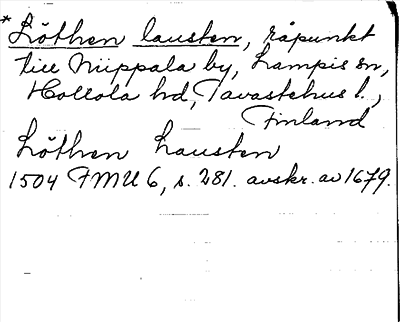 *Löthen lausten, råpunkt
till Niippala by, Lampis sn,
Hollola hd, Tavastehus l.,
Finland
Löthen Lausten
1504 FMU 6, s. 281. avskr. av 1679.